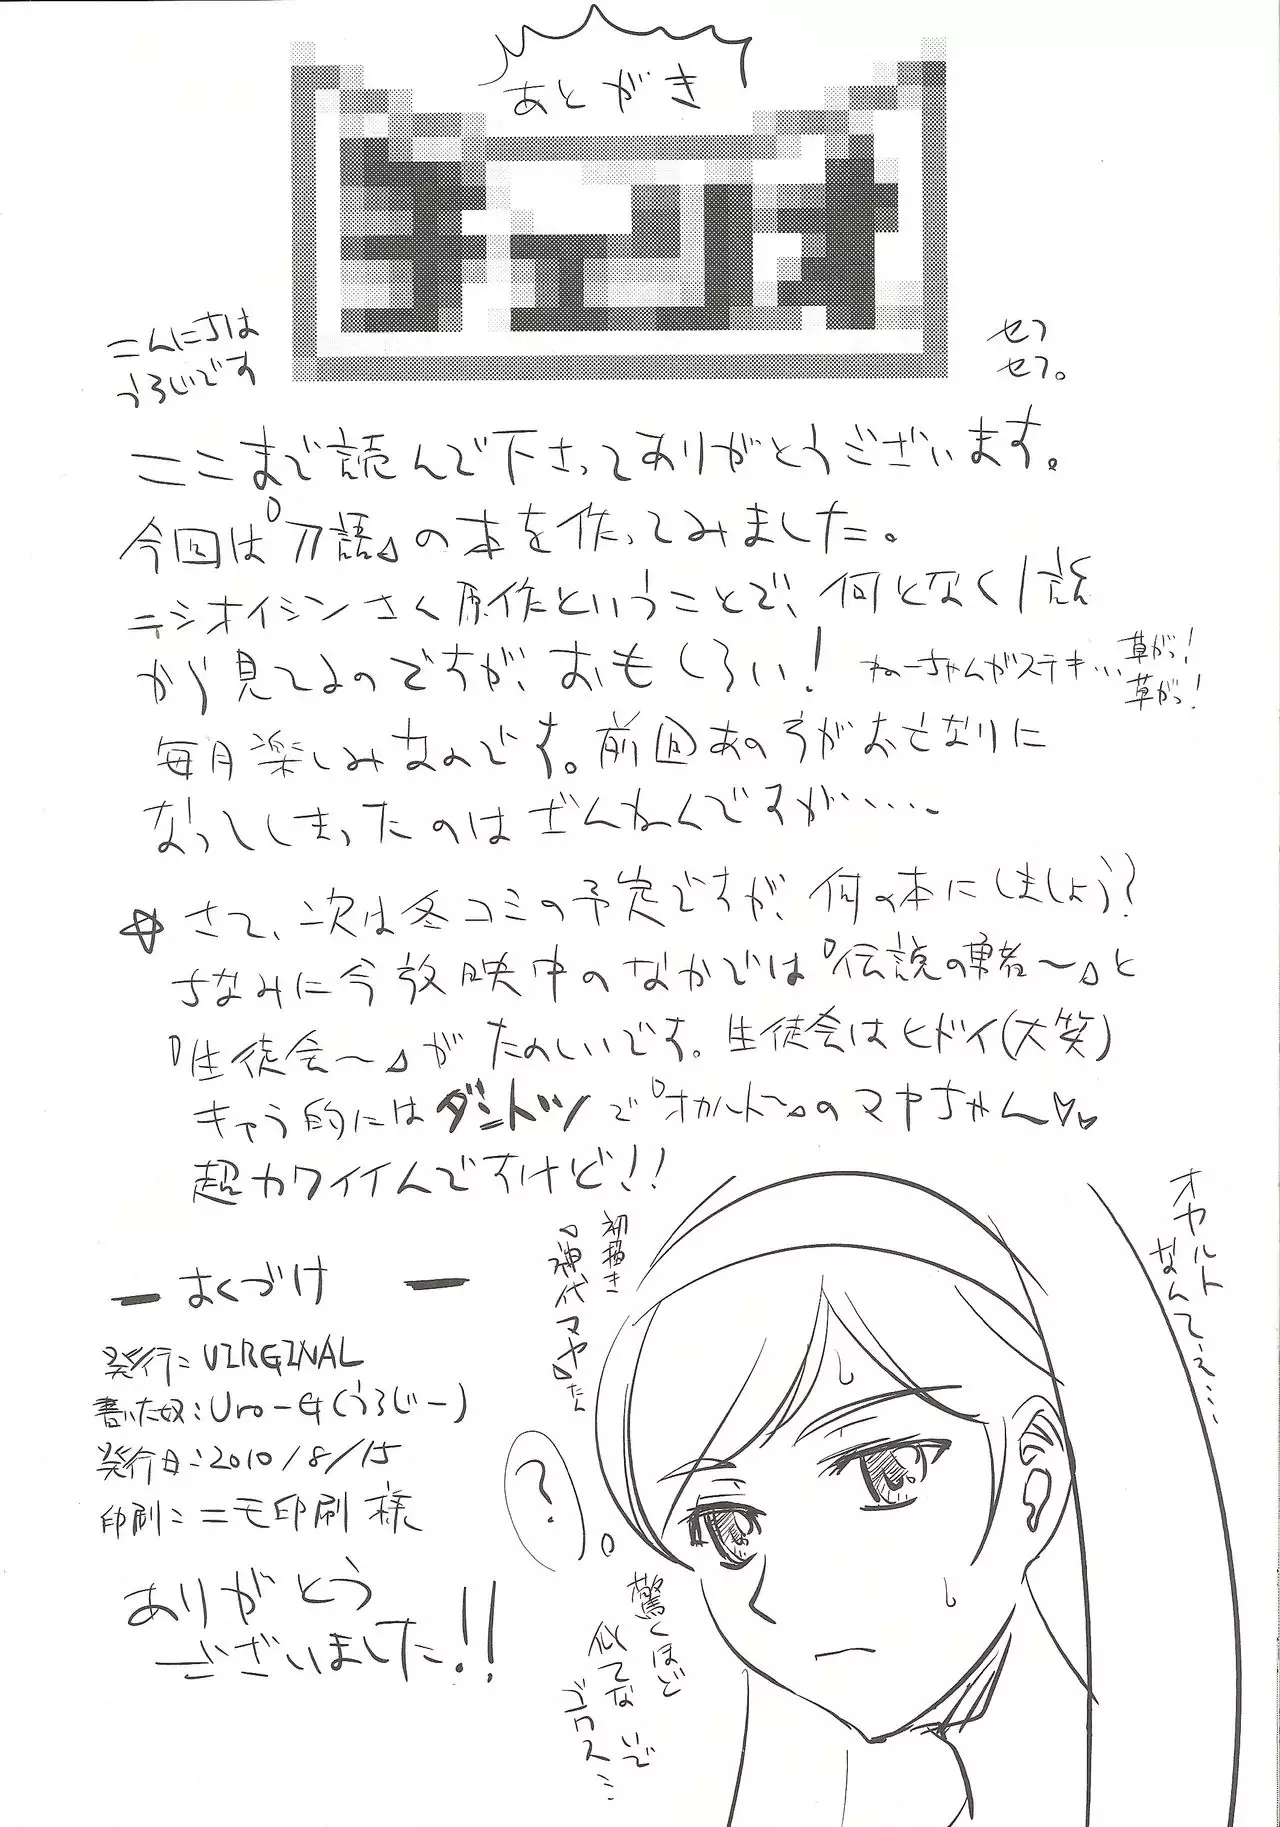 あとがき
チェリオ
こんにちは
うろじです
セフ
セフ。
ここまで読んで下さってありがとうございます。
今回は『刀語』の本を作ってみました。
ニシオイシンさく原作ということで、何となく1話
から見てるのですが、おもしろい!
ねーちゃんがステキ…草がっ!
草がっ!
毎月楽しみなのです。前回あの子がおさなりに
なってしまったのはざんねんですが……
☆さて、次は冬コミの予定ですが、何の本にしましょう?
ちなみに今放映中のなかでは『伝説の勇者〜』と
『生徒会〜』がたのしいです。生徒会はヒドイ(大笑)
キャラ的にはダントツで『オカルト〜』のマヤちゃん♡♥
超カワイイんですけど!!
オカルト
なんてぇ…
初描き
『神代マヤ』たん
?
驚くほど
似てないで
ゴワス…
ーおくづけー
発行:VIRGINAL
書いた奴:Uro-G(うろじー)
発行日:2010/8/15
印刷:ニモ印刷様
ありがとう
ございました!!